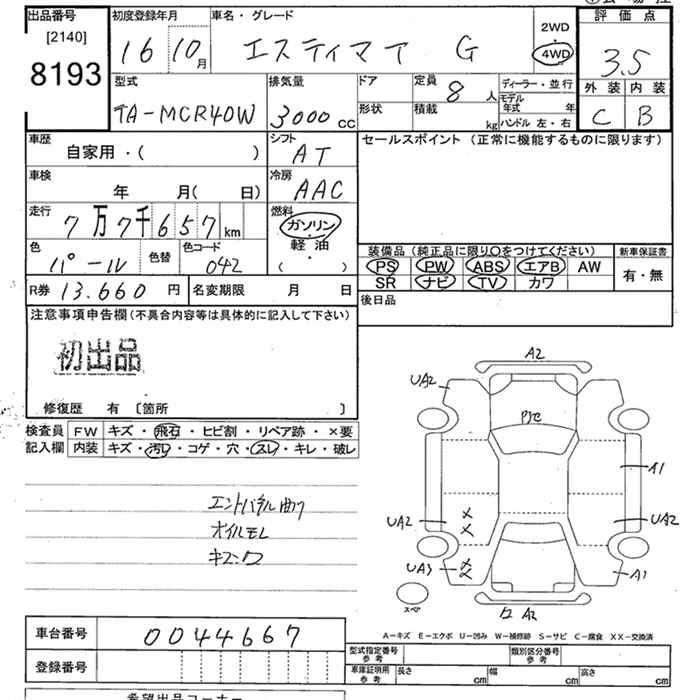 出品番号
[2140]
8193
初度登録年月 車名・グレード 2WD 4WD
16 10月 エスティマ T G
評価点
3.5
外装 内装
C B
型式 排気量 ドア 定員 8人 ディーラー・並行
TA-MCR40W 3000cc 形状 積載 kg モデル年式 年
ハンドル 左・右
車歴 シフト セールスポイント（正常に機能するものに限ります）
自家用・( ) AT
車検 冷房
年 月( 日) AAC
走行 燃料
7万7千657km ガソリン
軽油
( )
色 色替 色コード
パール 042
装備品（純正品に限り○をつけてください） 新車保証書
PS PW ABS エアB AW 有・無
SR ナビ TV カワ
R券 13.660円 名変期限 月 日
後日品
注意事項申告欄（不具合内容等は具体的に記入して下さい）
初出品
修復歴 有〔箇所 〕
検査員 FW キズ・飛石・ヒビ割・リペア跡・×要
記入欄 内装 キズ・汚レ・コゲ・穴・スレ・キレ・破レ
エンドパネル曲り
オイルモレ
A2
UA2
A1
UA2 × × UA2
UA3 × × A1
スペア
A2
A－キズ E－エクボ U－凹み W－補修跡 S－サビ C－腐食 XX－交換済
車台番号 0044667
登録番号
型式指定番号 参考 類別区分番号 参考
車庫証明用 参考 長さ cm 幅 cm 高さ cm
希望出品コーナー